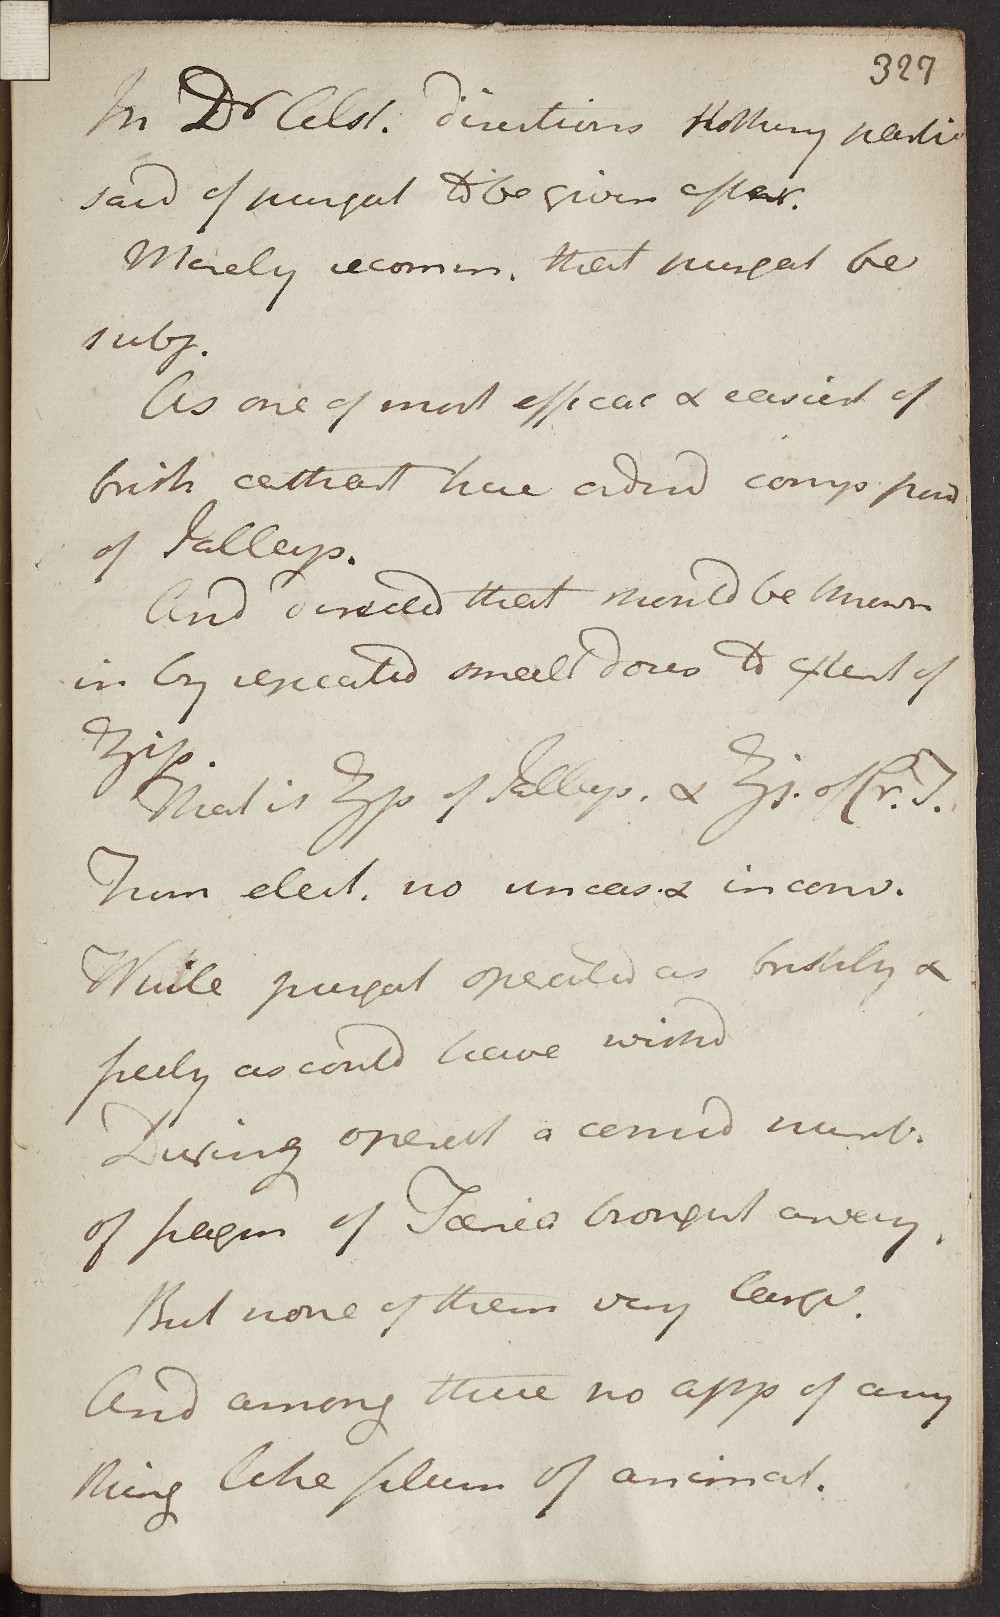 327
In Dr Alst. directions Nothing partic
said of purgat to be given after.
Merely recomm. that purgat be
subj.
As one of most efficac & easiest of
brisk cathart have order'd comp powd
of Jallap.
And directed that should be thrown
in by repeated small doses to extent of
ʒiſs.
That is ʒſs of Jallap. & ʒj. of Cr. T.
From elect. no uneas. & inconv.
While purgat operated as briskly &
freely as could have wishd
During operat a consid numb.
of fragm of Tænia brought away.
But none of them very large.
And among these no app of any
thing like of animal.